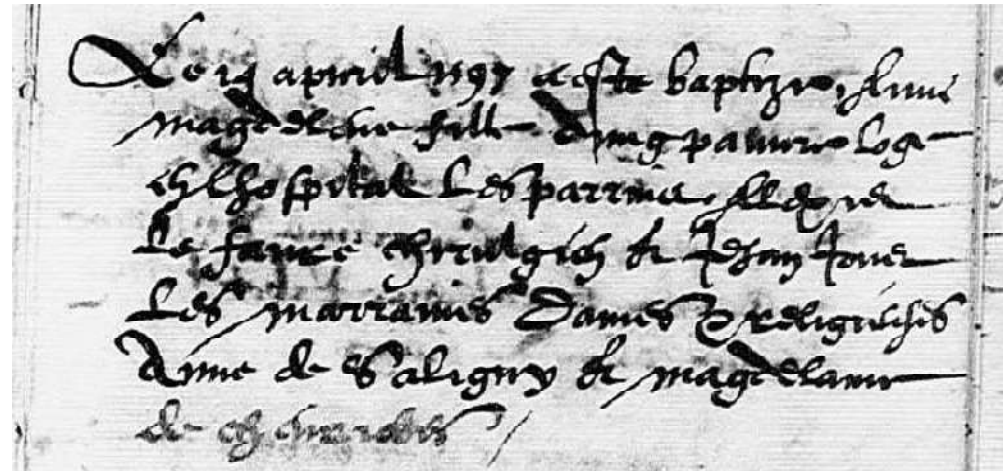 Le 19 apvril 1597 a este baptizee Anne
magdeleine fille dung pauvre loge
en lhospital Les parrins Alexis
Le faure chirurgien & Jehan
Les marraines Dames & religieuses
Anne de Saligny & magdelaine
de